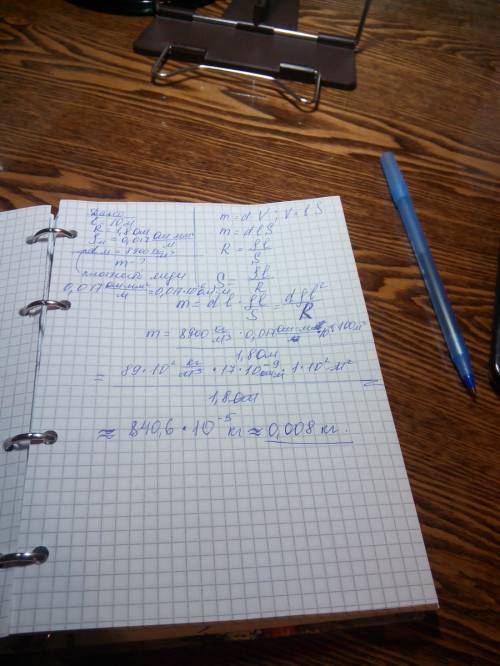 Дано:
l = 10 м
R = 1,8 ом
ρ = 0,017 ом мм²/м
m - ?
плотность меди
0,017 ом мм²/м = 0,017·10⁻⁶ ом м
m = d V ; V = l S
m = d l S
R = ρl/S
S = ρl/R
m = d l · ρl/S = dρl²/R
m = 8900 кг/м³ · 0,017 · 100 м² / 1,8 ом
= 89·10² кг/м³ · 17·10⁻⁹ ом м · 1·10² м² / 1,8 ом ≈
≈ 840,6 · 10⁻⁵ кг ≈ 0,008 кг.